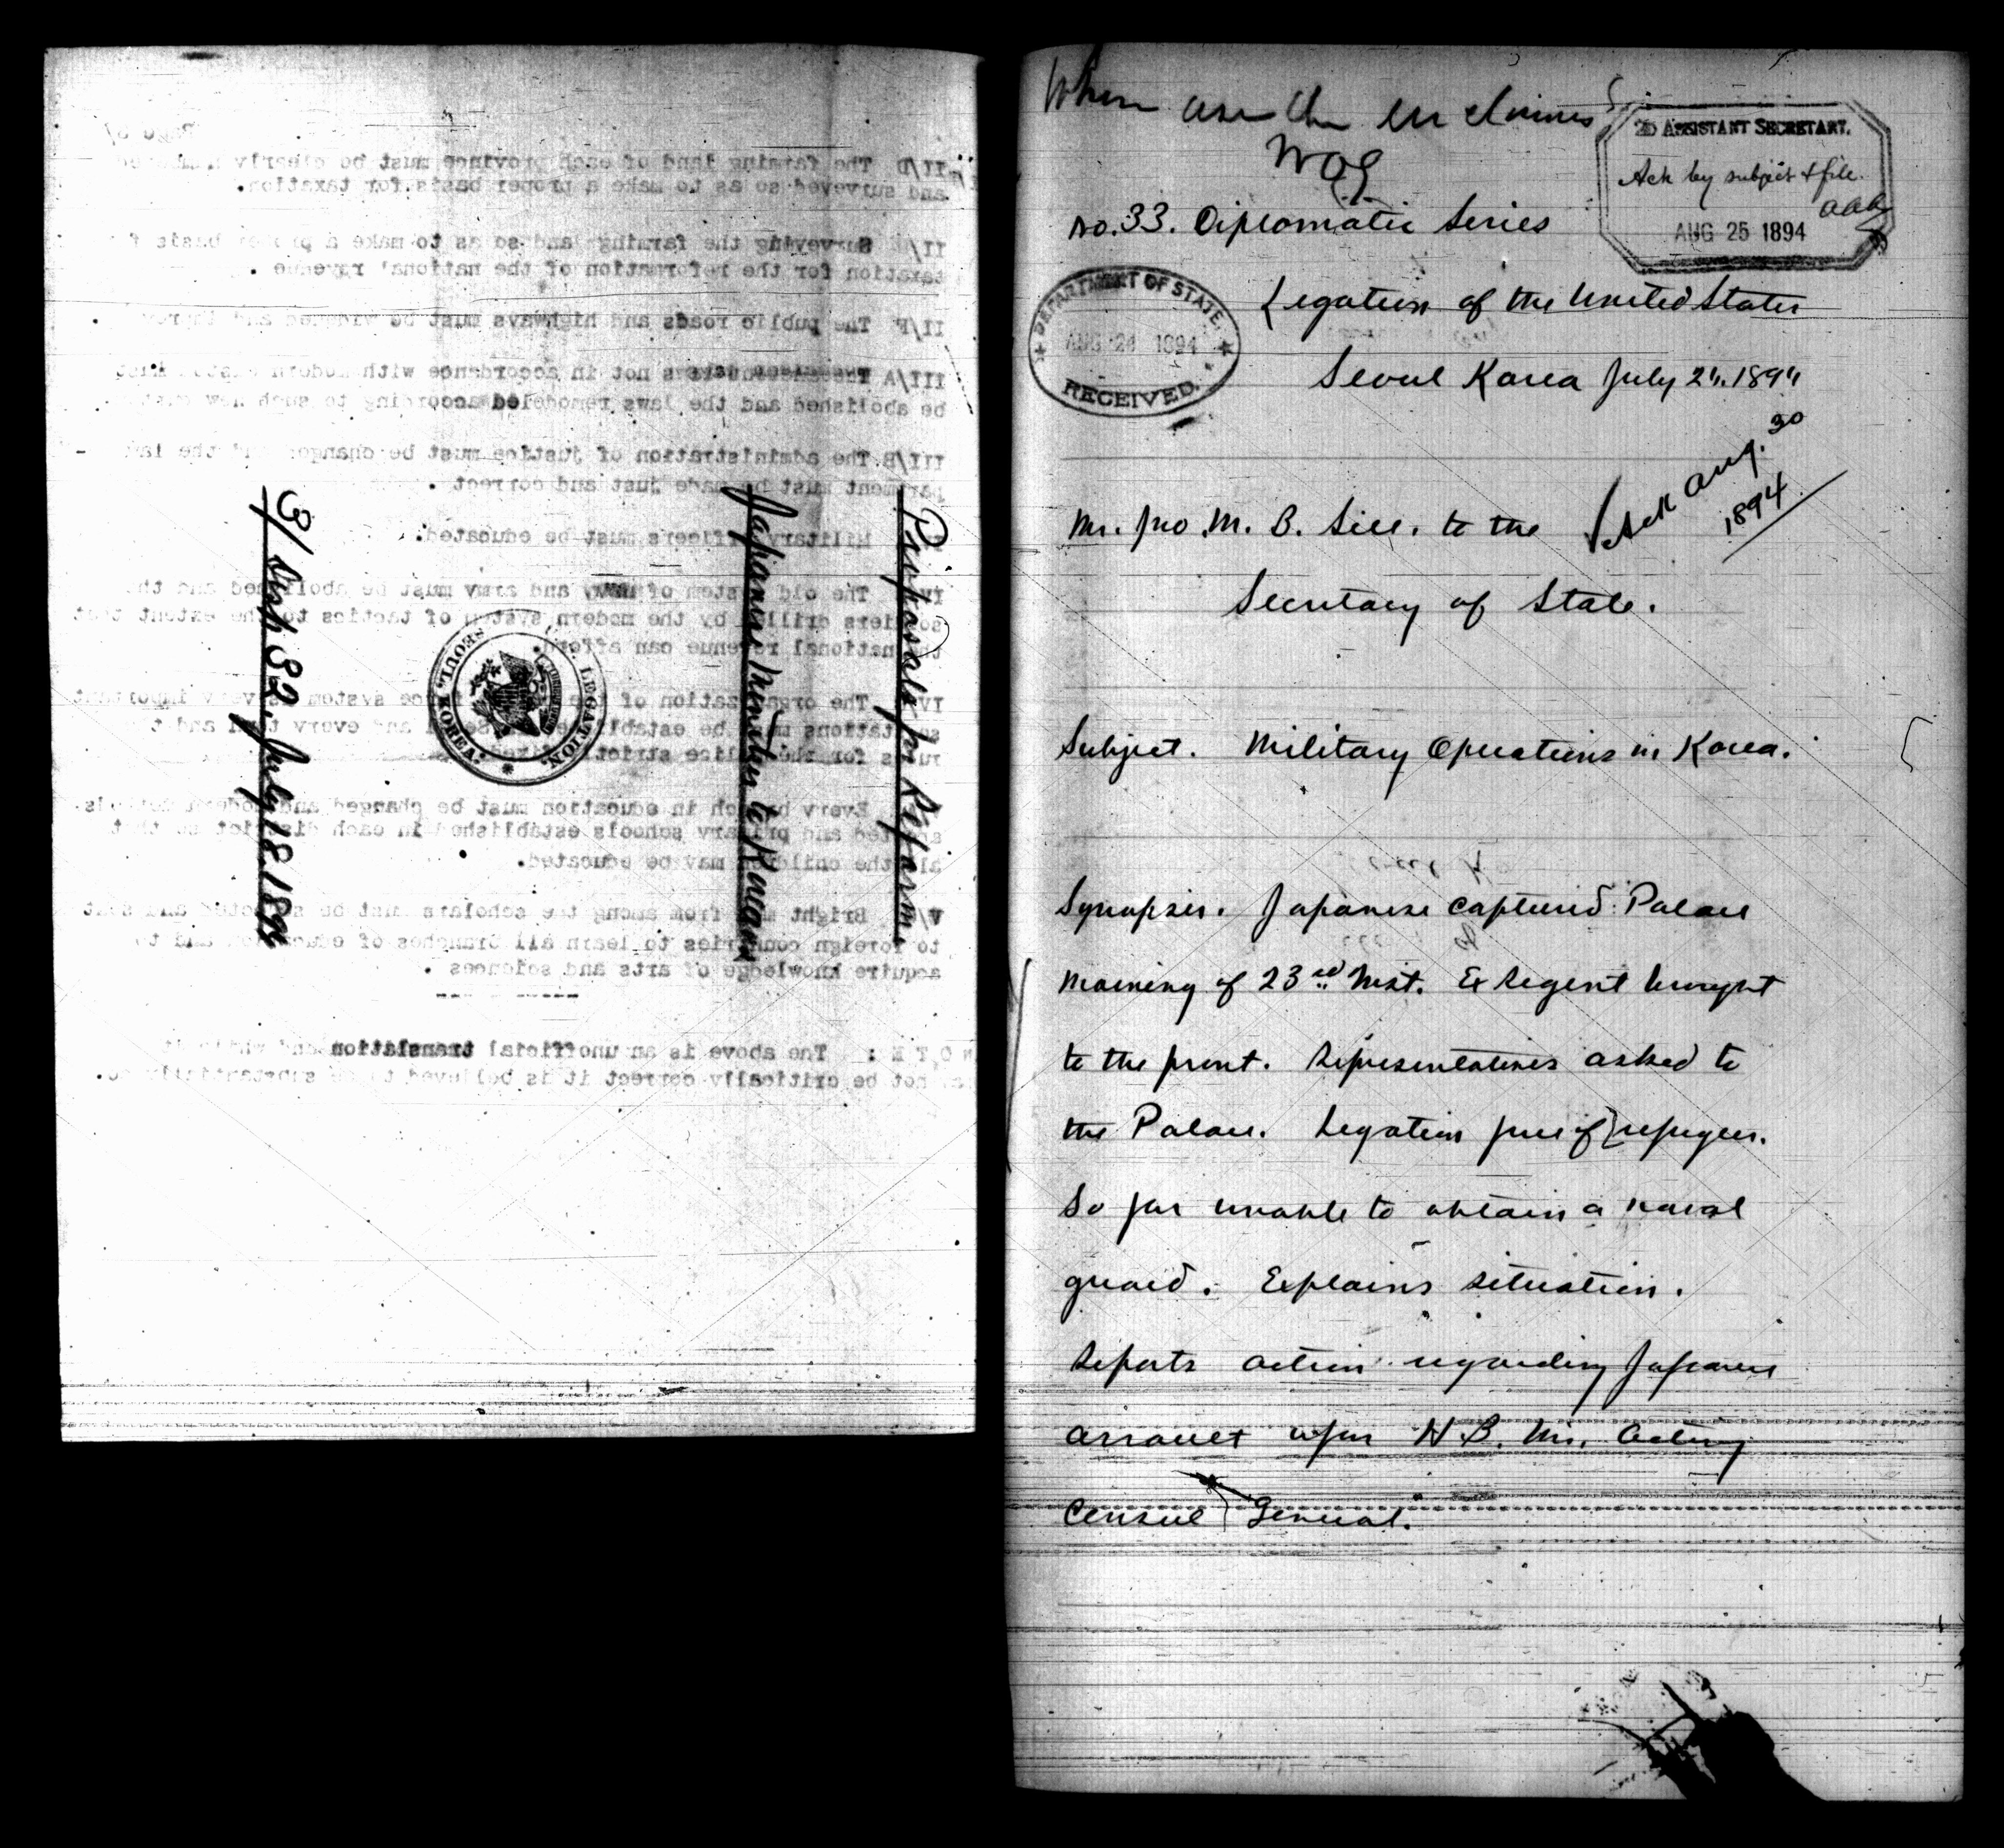 Proposals for Reform.
Japanese Minister to Korean
3/ Dsph 32, July 18, 1894
LEGATION.
SEOUL, KOREA.
II/D The farming land of each province must be clearly
and surveyed so as to make a proper basis for taxation.
II/E Surveying the farming land so as to make a proper basis f
taxation for the reformation of the national revenue.
II/F The public roads and highways must be widened and
III/A not in accordence with modern must
be abolished and the laws remodeled according to such new
III/B. The administration of justice must be changed and the
partment must be made just and correct.
Military officers must be educated.
IV/ The old system of navy and army must be abolished and the
soldiers drilled by the modern system of tactics to the extent that
the national revenue can afford.
IV/ The organization of the police system is very important
so stations must be established in Seoul and every town and
rules for the police strictly fixed
Every branch in education must be changed and modern schools
and primary schools established in each district so that
all the children may be educated.
V/ Bright men from among the scholars must be selected and sent
to foreign countries to learn all branches of education and to
acquire knowledge of arts and sciences.
NOTE: The above is an unofficial translation and while it
may not be critically correct it is believed to be substantially so.
Where are the enclosures?
2D ASSISTANT SECRETARY.
Ack by subject & file.
AUG 25 1894
aaa
No. 33. Diplomatic Series
DEPARTMENT OF STATE,
AUG 24 1894
RECEIVED.
Legation of the United States
Seoul Korea July 24, 1894
Ack Aug. 30
1894
Mr. Jno. M. B. Sill. to the
Secretary of State.
Subject. Military Operations in Korea.
Synopsis. Japanese captured Palace
morning of 23rd inst. Ex Regent brought
to the front. Representatives asked to
the Palace. Legation full of refugees.
So far unable to obtain a naval
guard. Explains situation.
Reports action regarding Japanese
assault upon H.B.M's. Acting
Consul General.